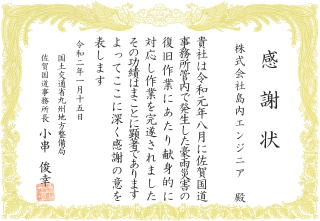 感謝状
株式会社島内エンジニア 殿
貴社は令和元年八月に佐賀国道
事務所管内で発生した豪雨災害の
復旧作業にあたり献身的に
対応し作業を完遂されました
その功績はまことに顕著であります
よってここに深く感謝の意を
表します
令和二年一月十五日
国土交通省九州地方整備局
佐賀国道事務所長 小串 俊幸